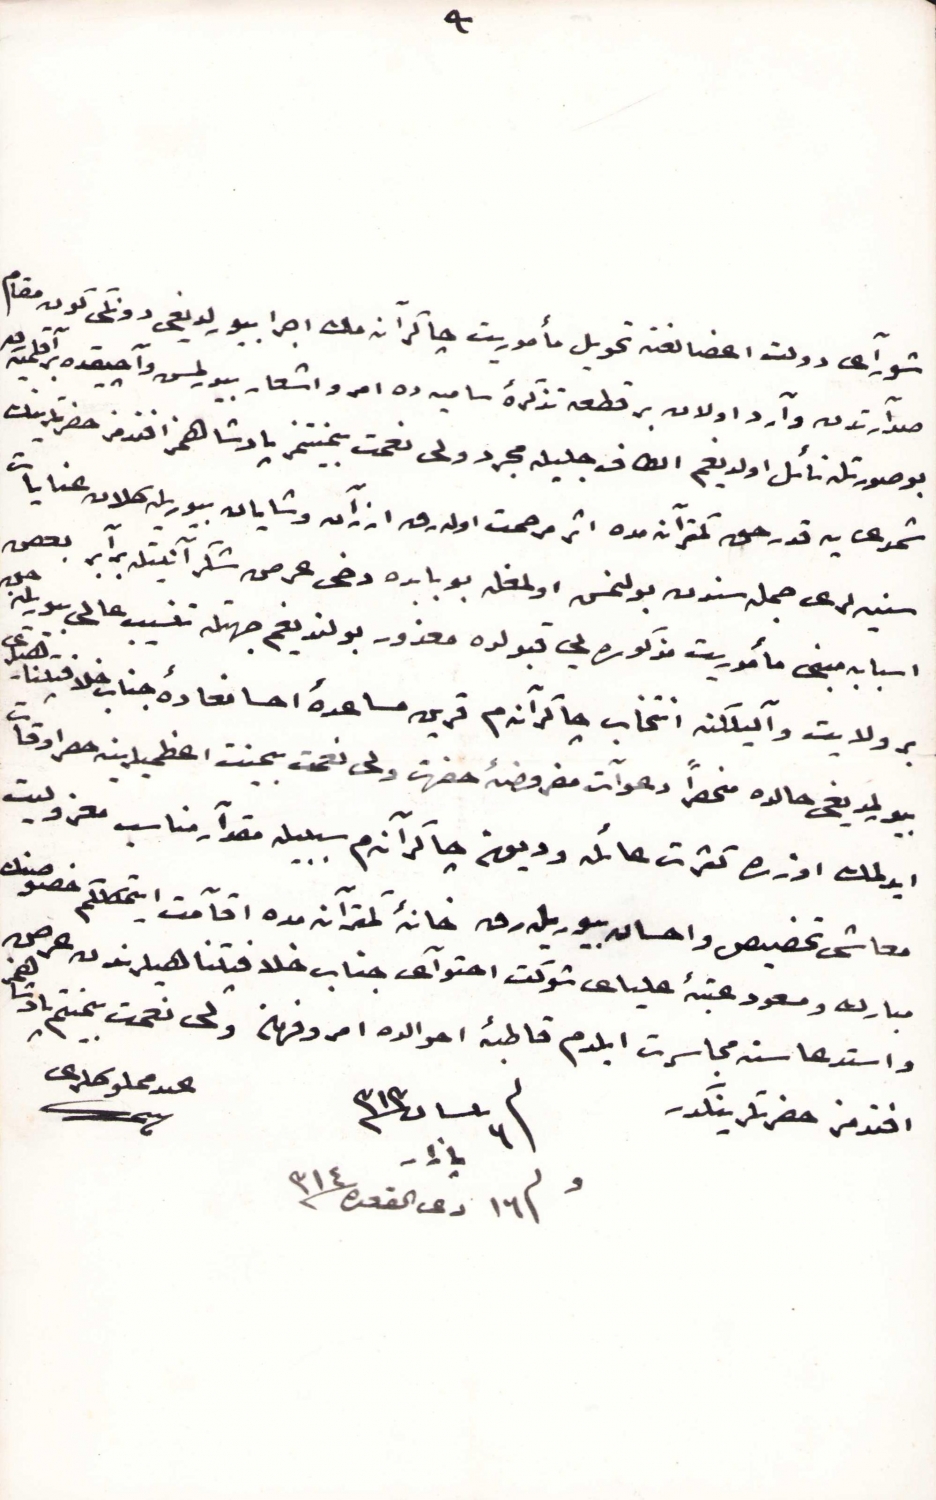 شورآی دولت اعضالغنه تحویل مأموریت چاکرآنه ملك اجرا بیورلدیغی دونکی کون مقام
صدآرتدن وآرد اولان بر قطعه تذکرهٔ سامیه ده امر و اشعار بیورلمش وآچیقده برآقلمیه رق
بو صورتله نائل اولدیغم الطاف جلیله مجرد ولی نعمت بیمنتمز پادشاهمز افندمز حضرتلرینك
شمدی یه قدر حق کمترآنه مده اثر مرحمت اوله رق ارزآن و شایان بیوریله کلان عنایات
سنیه لری جمله سندن بولنمش اولمغله بو بابده دخی عرض تشکرآتیله برآبر بعض
اسبابه مبنی مأموریت مذکوره یی قبولده معذور بولندیغم جهتله تنسیب عالی بیوریله جق
بر ولایت وآلیلکنه انتخاب چاکرآنه م قرین مساعدهٔ احسانعادهٔ جناب خلافتپناهیلری
بیورلمدیغی حالده منحصراً دعوآت مفروضهٔ حضرت ولی نعمت بیمنت اعظمیلرینه حصر اوقات
ایدلمك اوزره کثرت عائله و دیون چاکرآنه م سببیله مقدآر مناسب معزولیت
معاشی تخصیص و احسان بیوریله رق خانهٔ کمترآنه مده اقامت ایتمکلکم خصوصنك
مبارك و مسعود عتبهٔ علیای شوکت احتوآی جناب خلافتپناهیلرندن عرض
و استدعاسنه مجاسرت ایلدم قاطبهٔ احوالده امر و فرمان ولی نعمت بیمنتم پادشاهمز
افندمز حضرتلرینکدر
فی ٦ نیسان ٣١٣
عبد مملوکلری
بازار
و فی ١٦ ذی القعده ٣١٤